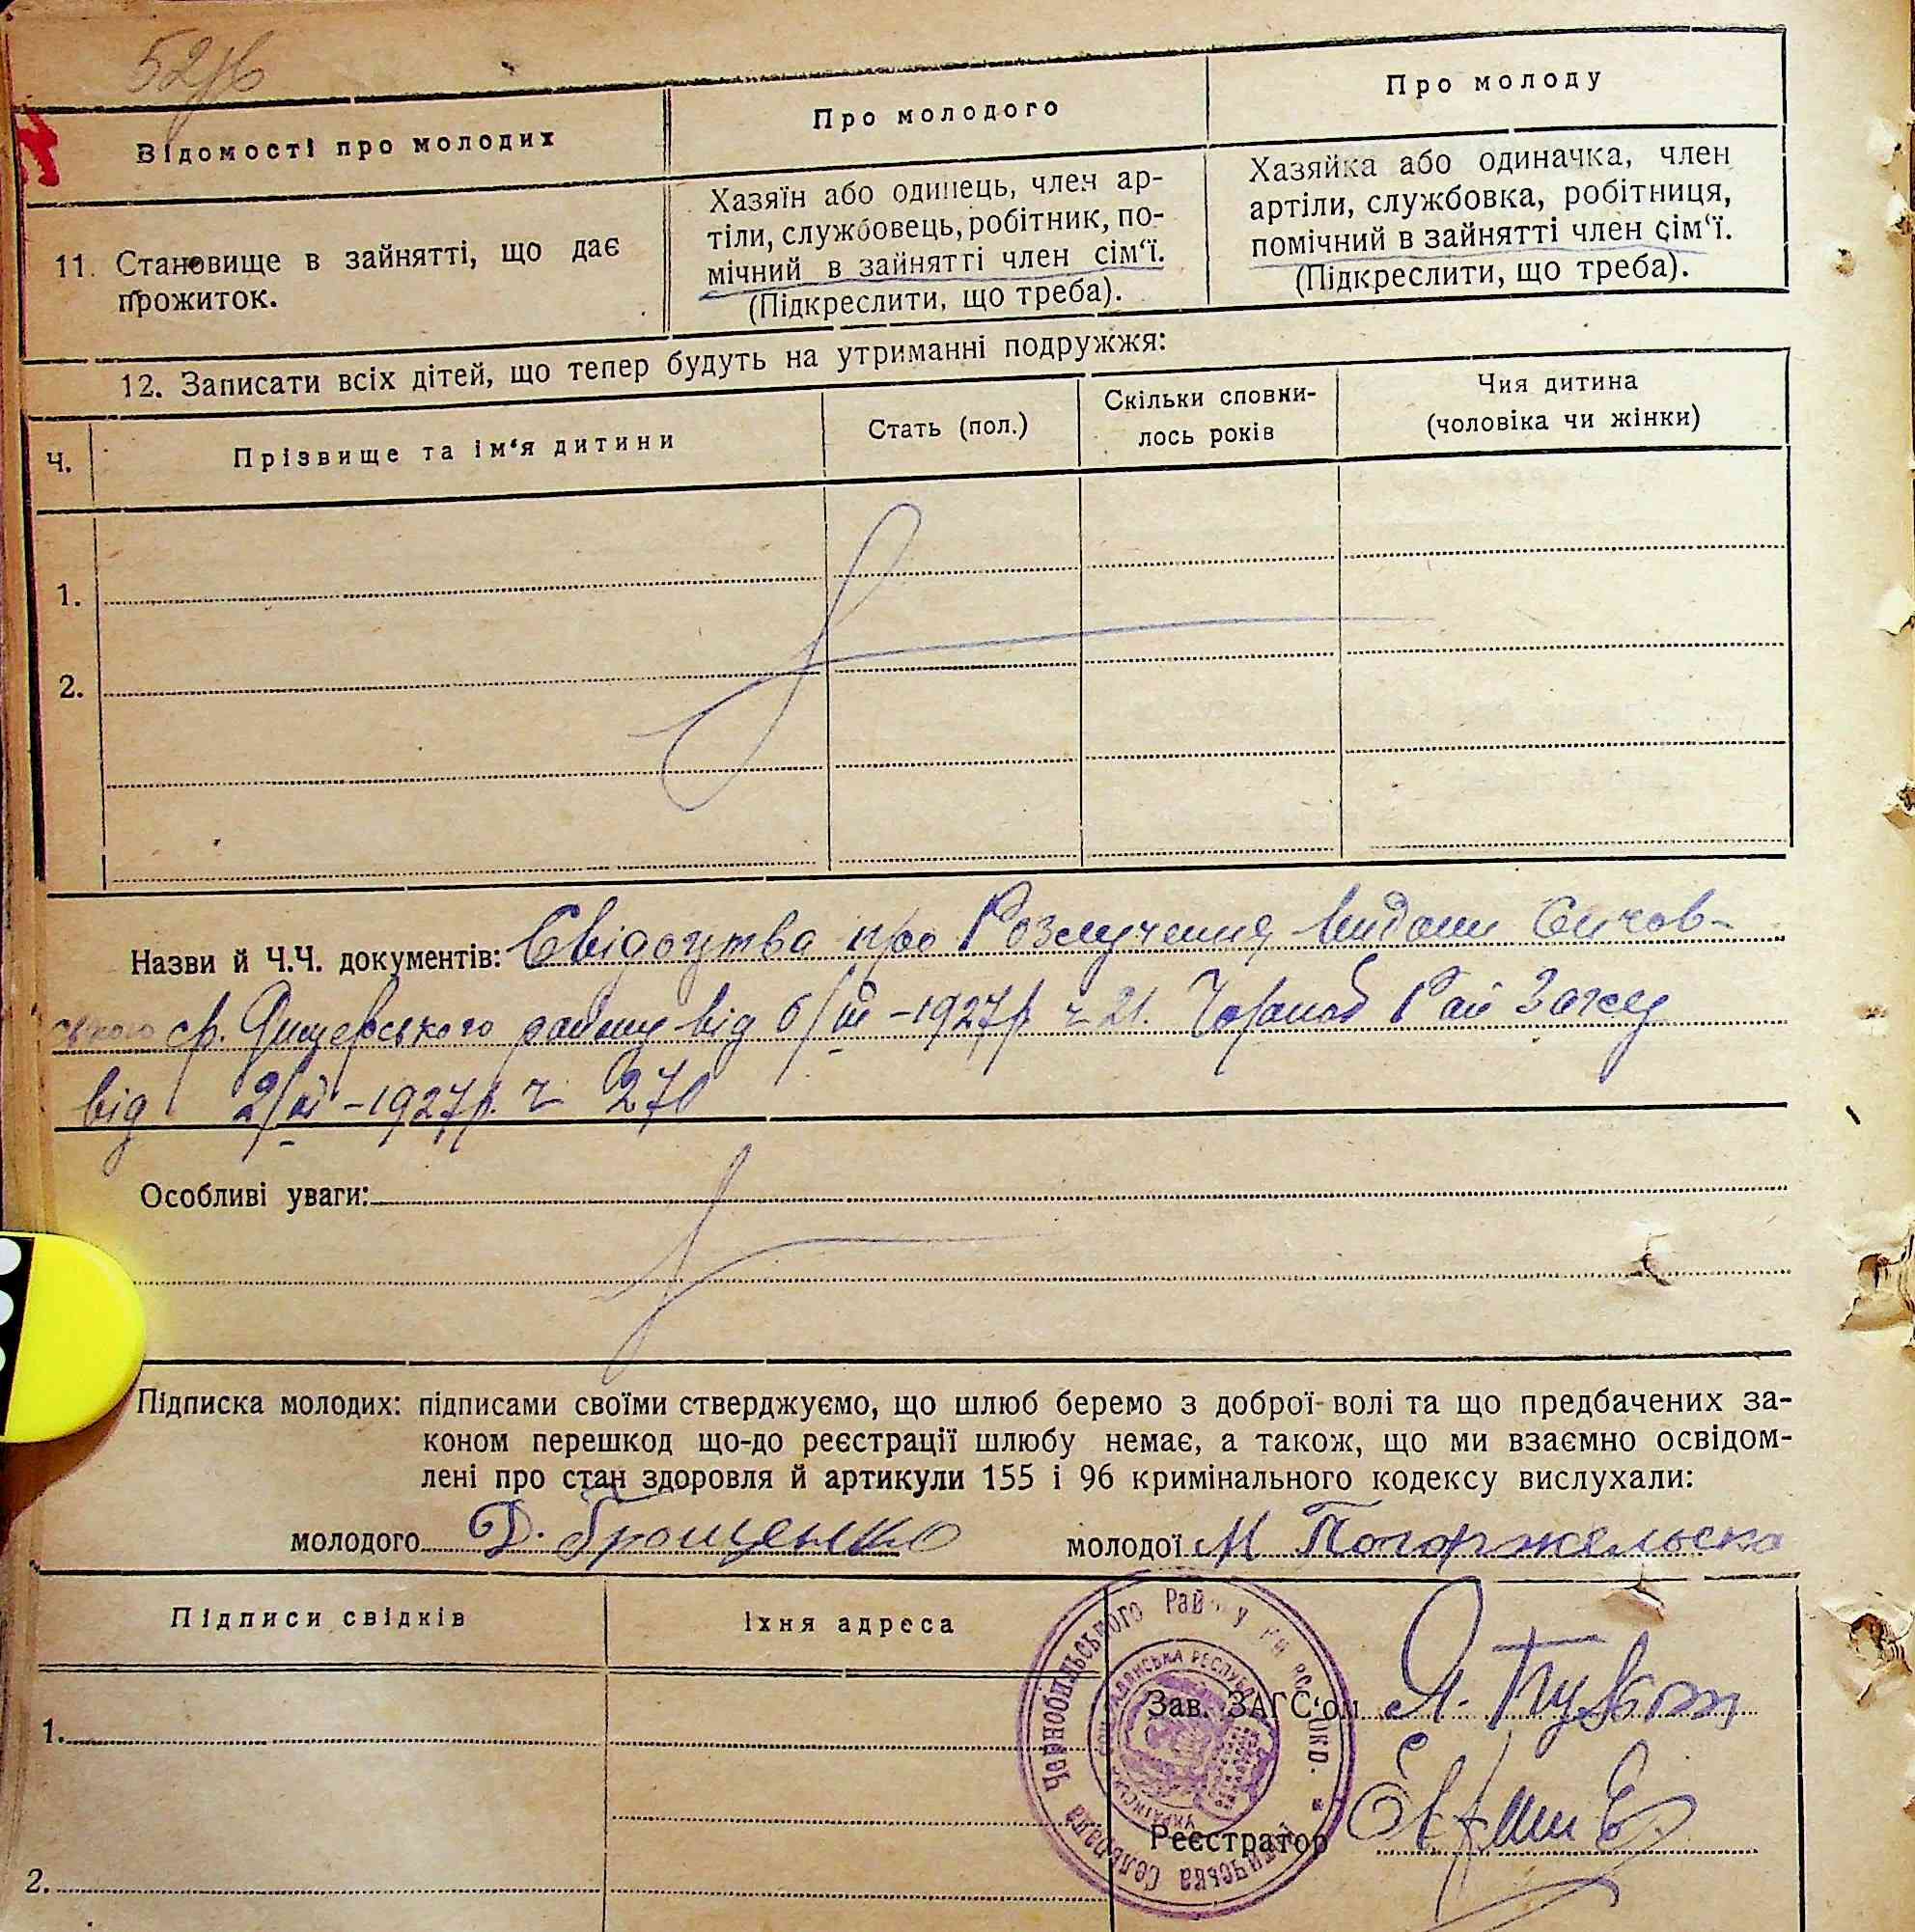 Відомості про молодих
Про молодого
Про молоду
11. Становище в зайнятті, що дає
прожиток.
Хазяїн або одинець, член ар-
тіли, службовець, робітник, по-
мічний в зайнятті член сім‘ї.
(Підкреслити, що треба).
Хазяйка або одиначка, член
артіли, службовка, робітниця,
помічний в зайнятті член сім‘ї.
(Підкреслити, що треба).
12. Записати всіх дітей, що тепер будуть на утриманні подружжя:
Ч.
Прізвище та ім‘я дитини
Стать (пол.)
Скільки сповни-
лось років
Чия дитина
(чоловіка чи жінки)
1.
2.
Назви й Ч.Ч. документів: Свідоцтва про Розлучення видани
району від 6/III–1927р. ч 21. Рай Загсу
від 2/VI–1927р. ч 270
Особливі уваги:
Підписка молодих: підписами своїми стверджуємо, що шлюб беремо з доброї волі та що предбачених за-
коном перешкод що-до реєстрації шлюбу немає, а також, що ми взаємно освідом-
лені про стан здоровля й артикули 155 і 96 кримінального кодексу вислухали:
молодого Д. Грощенко молодої М Погоржельска
Підписи свідків
Їхня адреса
Чорнобильського Району
Сельрада
Зав. ЗАГС‘ом
Реєстратор
1.
2.